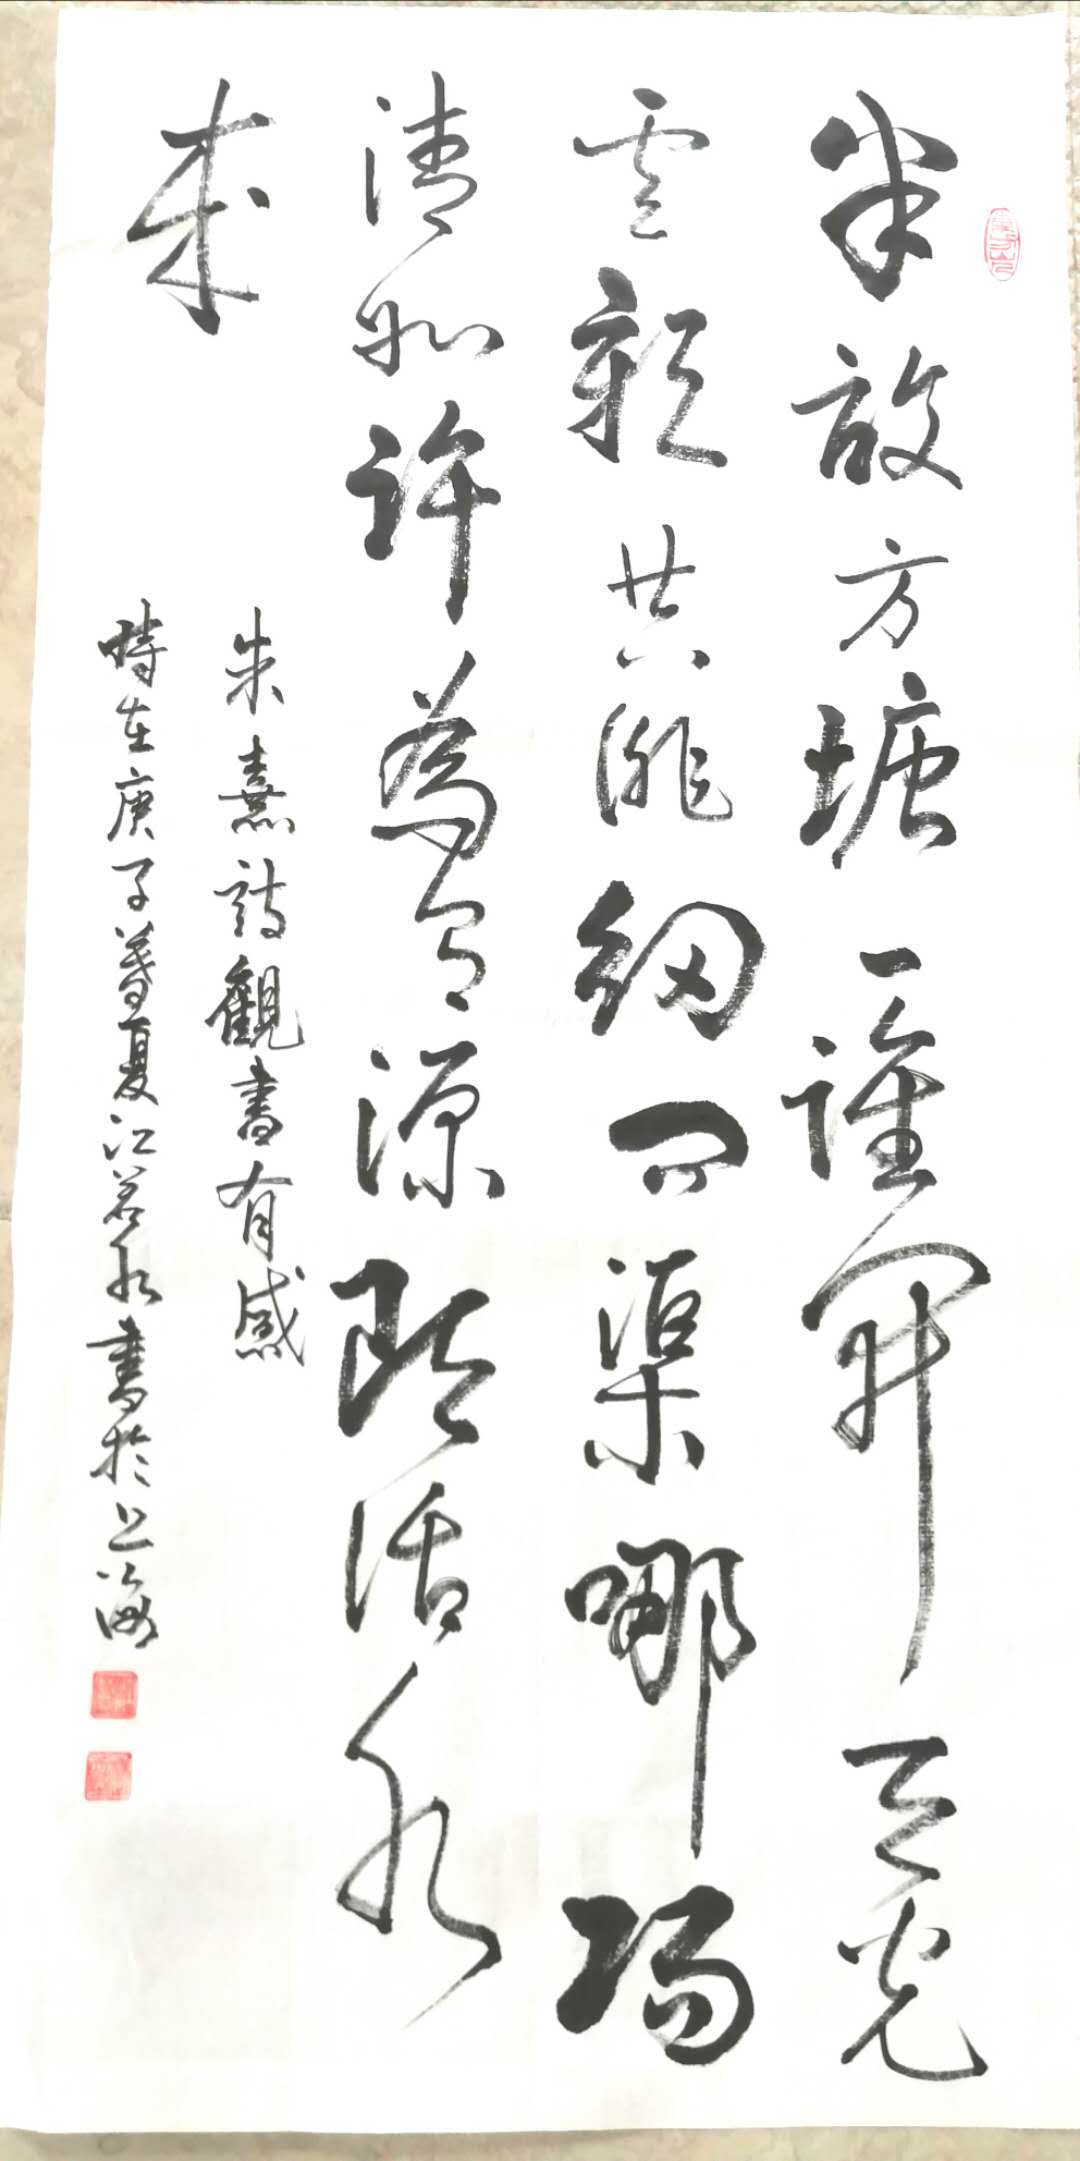 半畝方塘一鑑開天光
雲影共徘徊问渠哪得
清如許為有源頭活水
来
朱熹詩觀書有感
時在庚子暮夏江若水書於上海